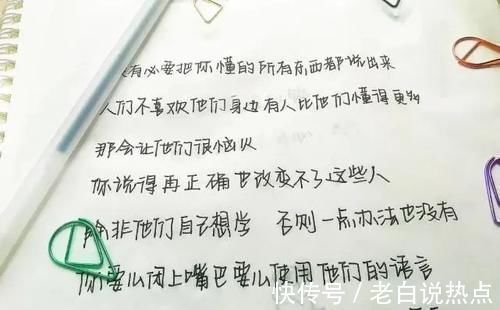 没有必要把你懂的所有东西都说出来
人们不喜欢他们身边有人比他们懂得更多
那会让他们很恼火
你说得再正确也改变不了这些人
除非他们自己想学 否则一点办法也没有
你要么闭上嘴巴要么使用他们的语言
快传号/老白说热点